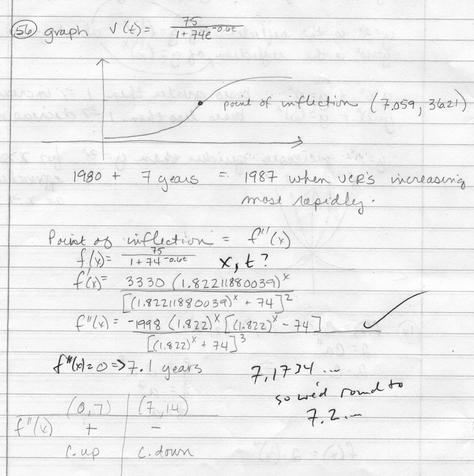 56 graph V(t) = 75 / 1 + 74e^-0.6t
point of inflection (7.059, 36.21)
1980 + 7 years = 1987 when VCR's increasing
most rapidly.
Point of inflection = f''(x)
f(x) = 75 / 1 + 74^-0.6t x, t?
f'(x) = 3330 (1.82211880039)^x / [(1.82211880039)^x + 74]^2
f''(x) = -1998 (1.822)^x [(1.822)^x - 74] / [(1.822)^x + 74]^3
f''(x) = 0 => 7.1 years 7.1734 ...
so we'd round to
7.2 ...
(0, 7) (7, 14)
f''(x) + -
c. up c. down